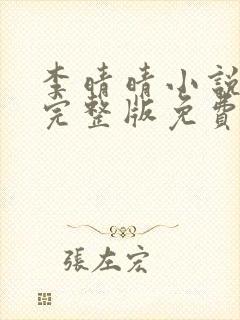 李晴晴小說
完整版免費
張左宏